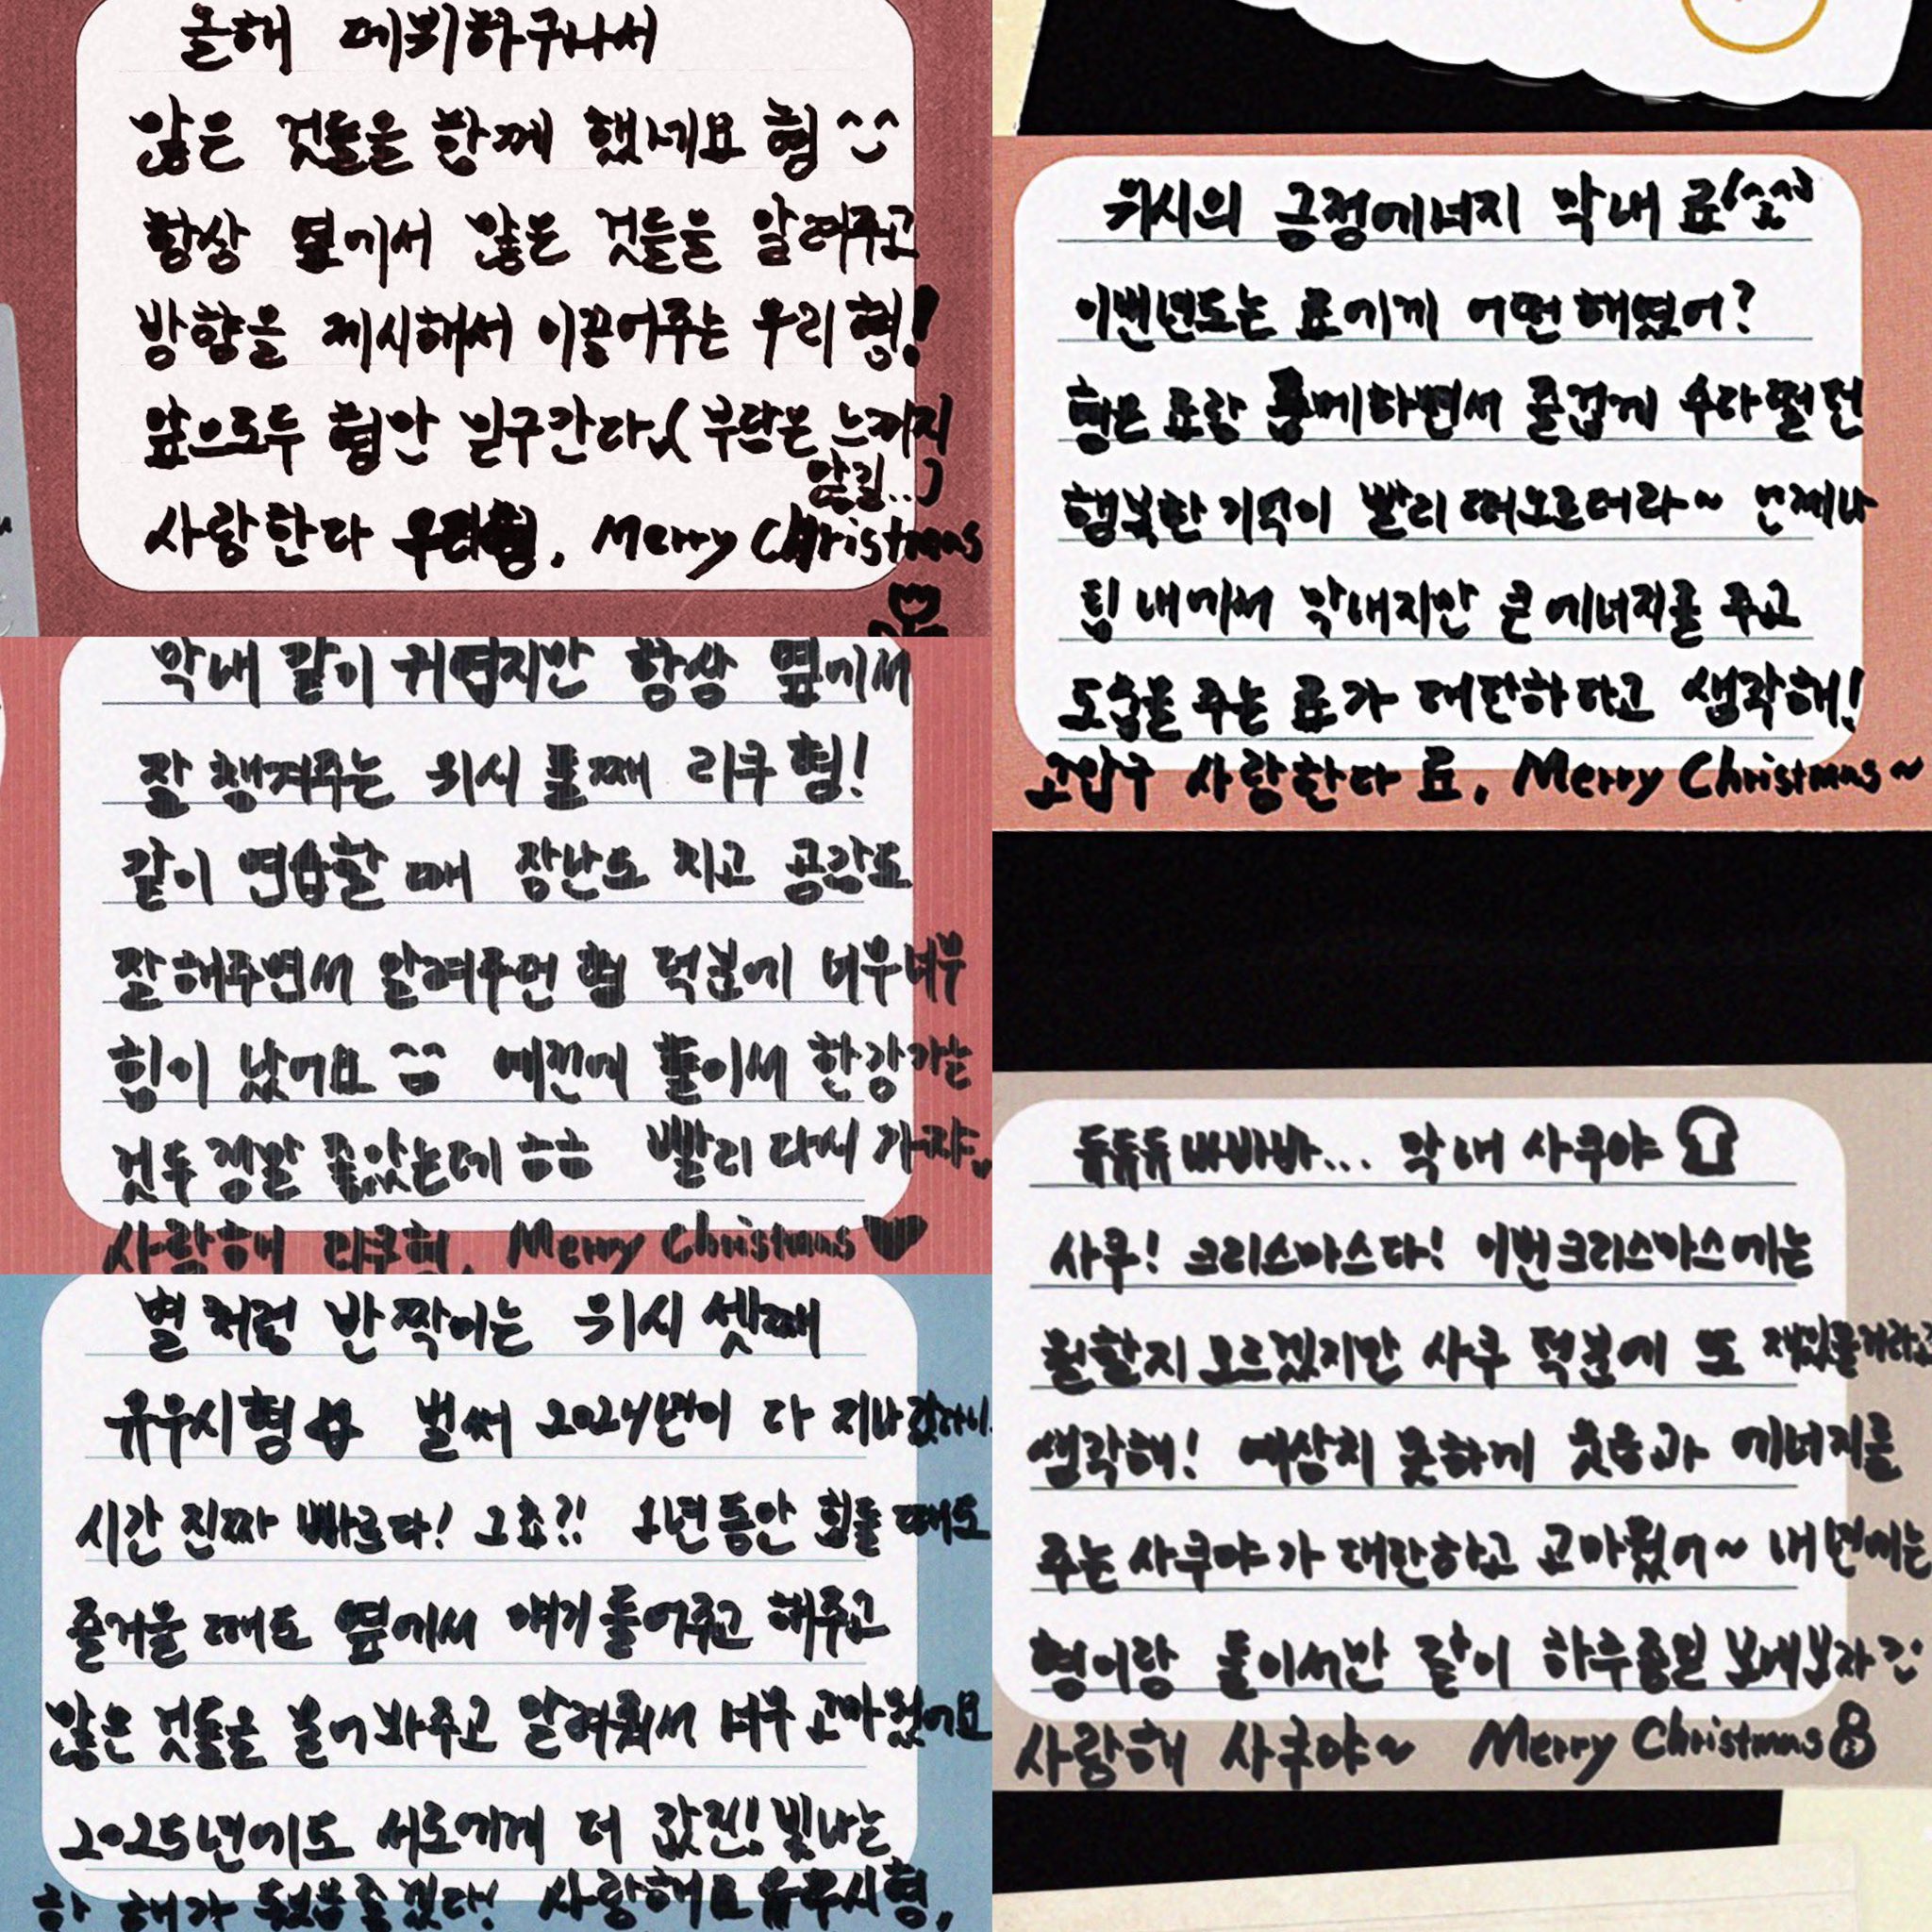 올해 데뷔하구나서
많은 것들을 함께 했네요 형 ^^
항상 옆에서 많은 것들을 알려주고
방향을 제시해서 이끌어주는 우리 형!
앞으로두 형만 믿구간다 (부담은 느끼지
않길..)
사랑한다 우리형, Merry Christmas
막내 같이 귀엽지만 항상 옆에서
잘 챙겨주는 위시 둘째 리쿠 형!
같이 연습할 때 장난도 치고 공감도
잘해주면서 알려주던 형 덕분에 너무너무
힘이 났어요 ^^ 예전에 둘이서 한강 가는
것두 정말 좋았는데 ㅎㅎ 빨리 다시 가쟈
사랑해 리쿠형, Merry Christmas ♥
별처럼 반짝이는 위시 셋째
유우시형 벌써 2024년이 다 지나갔다니
시간 진짜 빠르다! 그쵸?! 1년동안 힘들 때도
즐거울 때도 옆에서 얘기 들어주고 해주고
많은 것들을 물어봐주고 알려줘서 너무 고마웠어요
2025년에도 서로에게 더 값진! 빛나는
한 해가 됐음 좋겠다! 사랑해요 유우시형,
위시의 긍정에너지 막내 료(^^)
이번년도는 료에게 어떤 해였어?
형은 료랑 룸메하면서 즐겁게 수다떨던
행복한 기억이 빨리 떠오르더라~ 언제나
팀 내에서 막내지만 큰 에너지를 주고
도움을 주는 료가 대단하다고 생각해!
고맙구 사랑한다 료, Merry Christmas~
듀듀듀 바바바... 막내 사쿠야
사쿠! 크리스마스다! 이번크리스마스에는
뭘할지 모르겠지만 사쿠 덕분에 또 재밌을거라고
생각해! 예상치 못하게 웃음과 에너지를
주는 사쿠야가 대단하고 고마웠어~ 내년에는
형이랑 둘이서만 같이 하루종일 보내보자
사랑해 사쿠야~ Merry Christmas